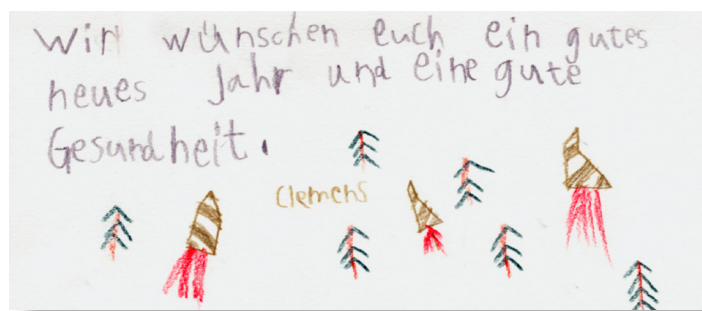 Wir wünschen euch ein gutes
neues Jahr und eine gute
Gesundheit.
Clemens